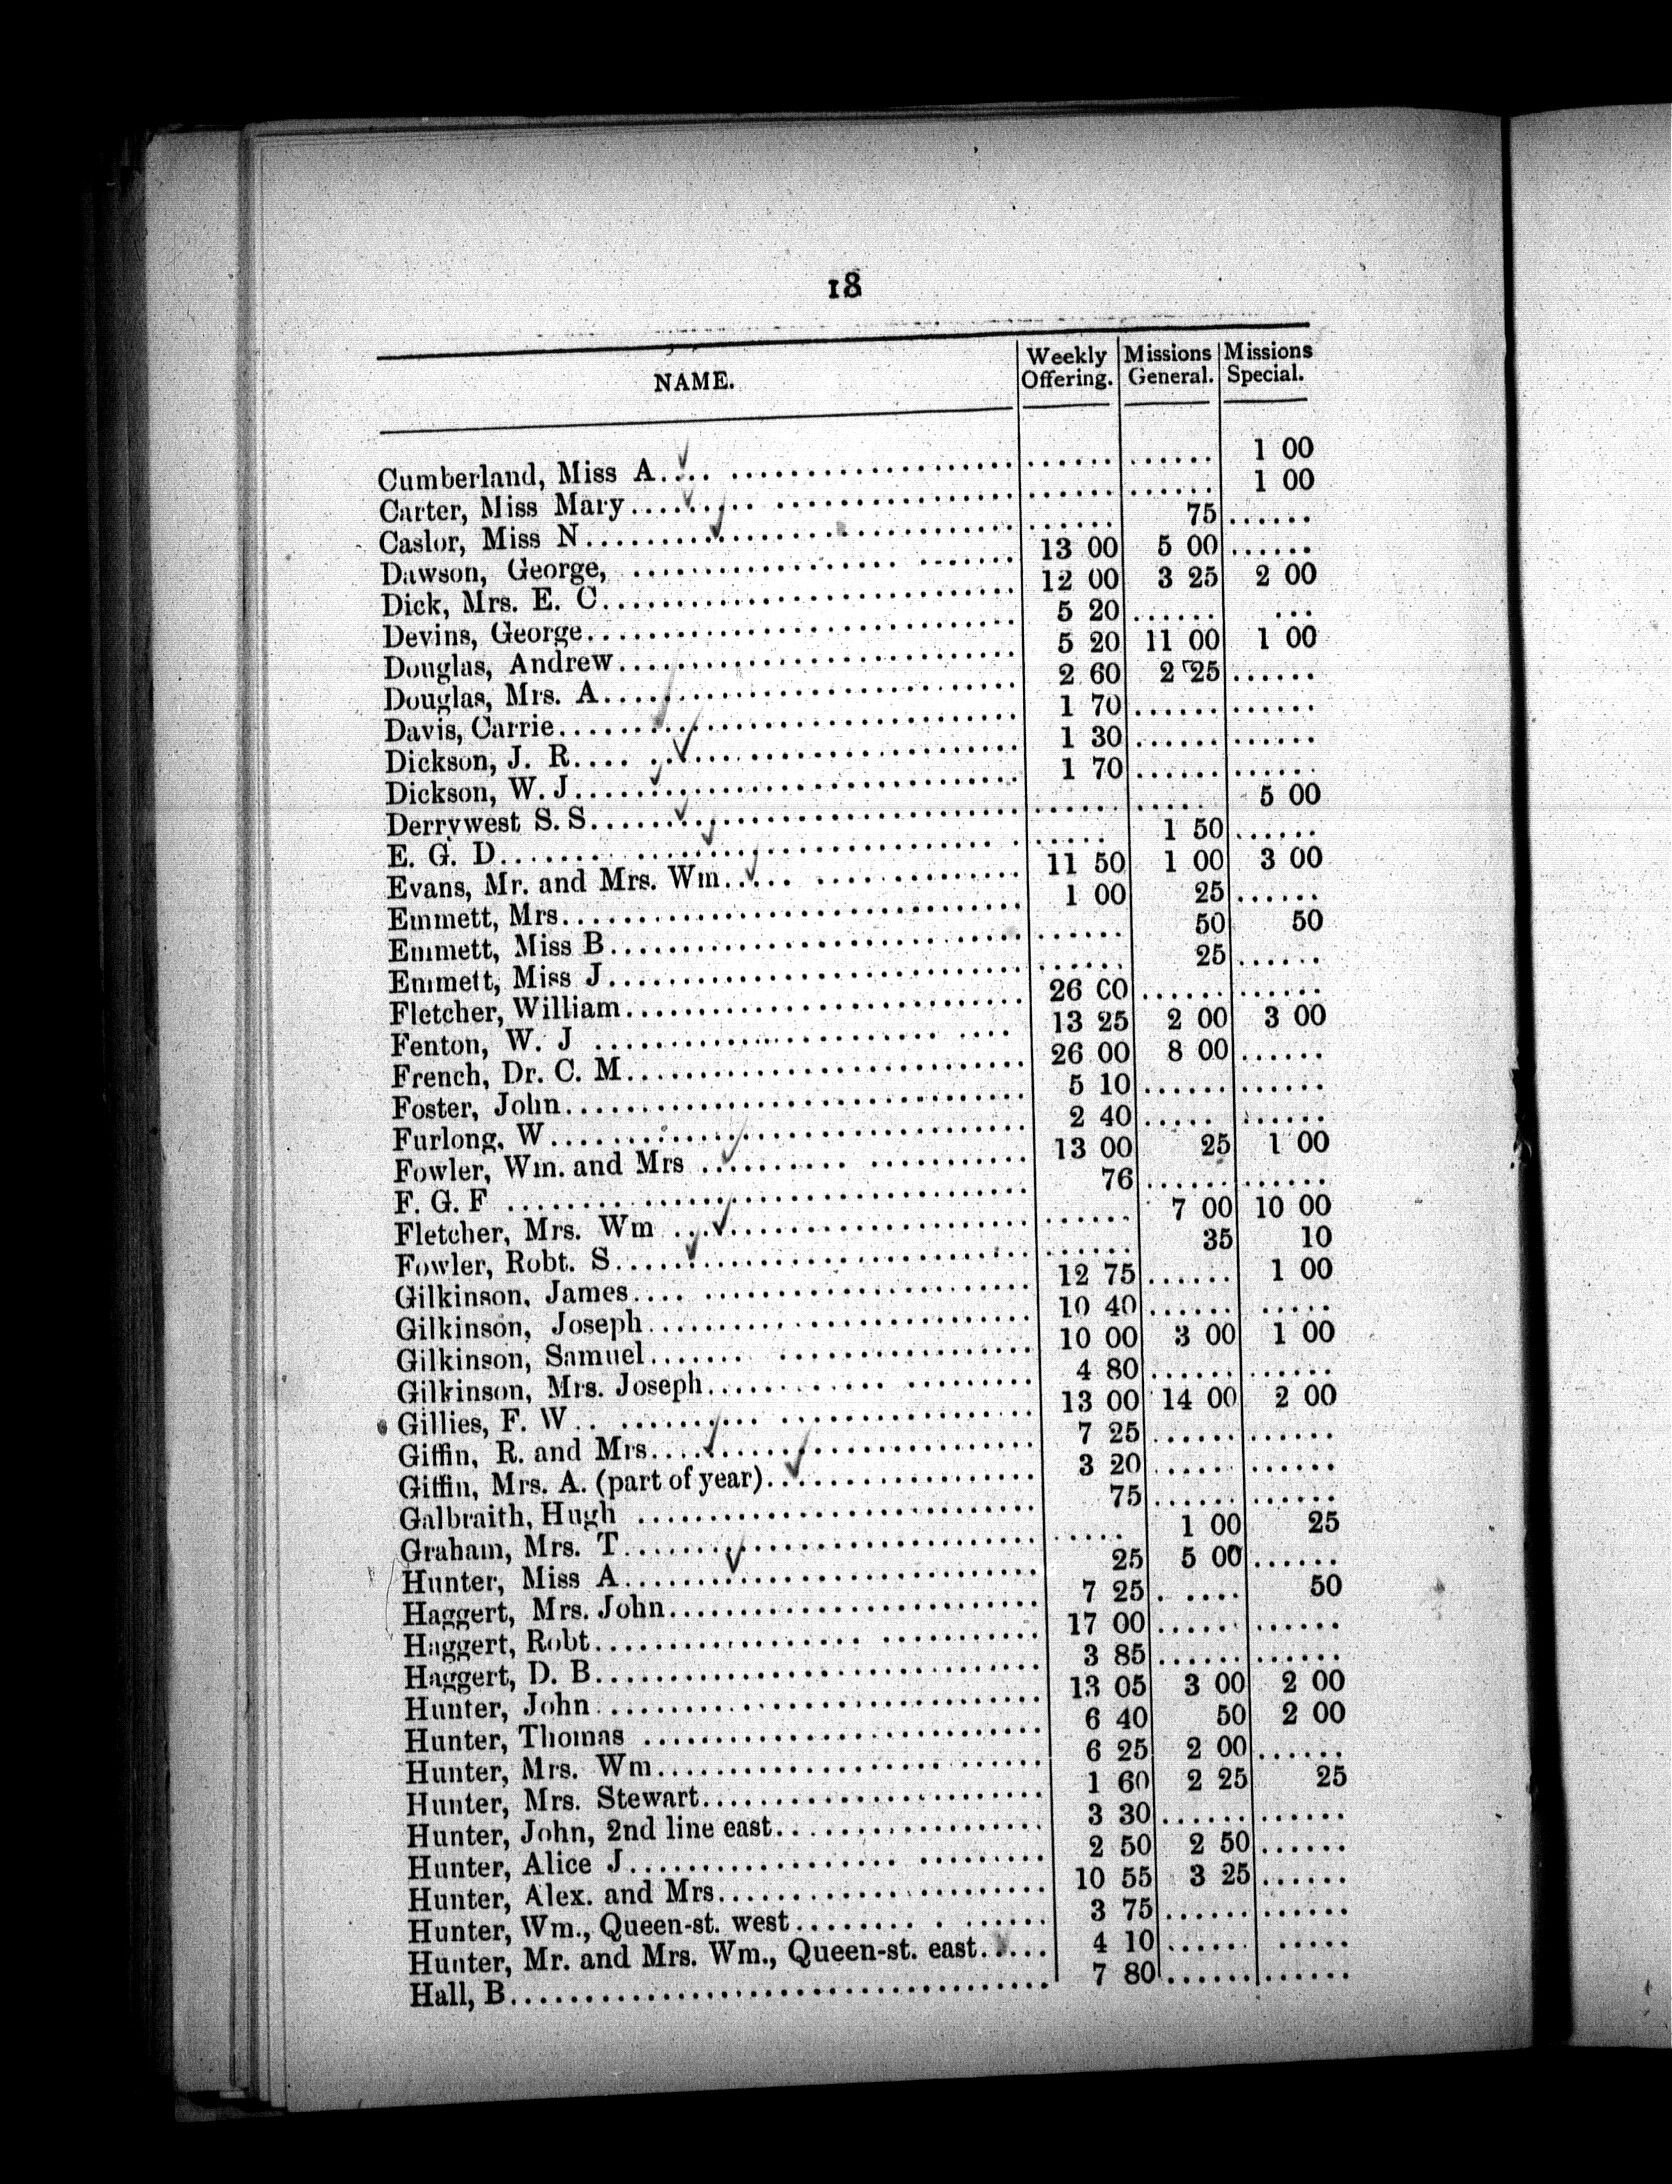 18
NAME. Weekly Offering. Missions General. Missions Special.
Cumberland, Miss A.... ...... ...... 1 00
Carter, Miss Mary.... ...... ...... 1 00
Caslor, Miss N.... ...... 75 ......
Dawson, George, .... 13 00 5 00 ......
Dick, Mrs. E. C.... 12 00 3 25 2 00
Devins, George.... 5 20 ...... ...
Douglas, Andrew.... 5 20 11 00 1 00
Douglas, Mrs. A.... 2 60 2 25 ......
Davis, Carrie.... 1 70 ...... ......
Dickson, J. R.... 1 30 ...... ......
Dickson, W. J.... 1 70 ...... ......
Derrywest S. S.... ...... ..... 5 00
E. G. D.... ..... 1 50 ......
Evans, Mr. and Mrs. Wm.... 11 50 1 00 3 00
Emmett, Mrs.... 1 00 25 ......
Emmett, Miss B.... ...... 50 50
Emmett, Miss J.... ...... 25 ......
Fletcher, William.... 26 00 ...... ......
Fenton, W. J .... 13 25 2 00 3 00
French, Dr. C. M.... 26 00 8 00 ......
Foster, John.... 5 10 ...... ......
Furlong, W.... 2 40 ..... ......
Fowler, Wm. and Mrs .... 13 00 25 1 00
F. G. F .... 76 ...... ......
Fletcher, Mrs. Wm .... ...... 7 00 10 00
Fowler, Robt. S.... ...... 35 10
Gilkinson, James.... 12 75 ...... 1 00
Gilkinson, Joseph.... 10 40 ...... .....
Gilkinson, Samuel.... 10 00 3 00 1 00
Gilkinson, Mrs. Joseph.... 4 80 ...... ......
Gillies, F. W.... 13 00 14 00 2 00
Giffin, R. and Mrs.... 7 25 ...... ......
Giffin, Mrs. A. (part of year).... 3 20 ...... ......
Galbraith, Hugh .... 75 ...... ......
Graham, Mrs. T.... ..... 1 00 25
Hunter, Miss A.... 25 5 00 ......
Haggert, Mrs. John.... 7 25 ..... 50
Haggert, Robt.... 17 00 ...... ......
Haggert, D. B.... 3 85 ...... ......
Hunter, John.... 13 05 3 00 2 00
Hunter, Thomas .... 6 40 50 2 00
Hunter, Mrs. Wm.... 6 25 2 00 ......
Hunter, Mrs. Stewart.... 1 60 2 25 25
Hunter, John, 2nd line east.... 3 30 ...... ......
Hunter, Alice J.... 2 50 2 50 ......
Hunter, Alex. and Mrs.... 10 55 3 25 ......
Hunter, Wm., Queen-st. west.... 3 75 ...... ......
Hunter, Mr. and Mrs. Wm., Queen-st. east..... 4 10 ...... .....
Hall, B.... 7 80 ...... ......